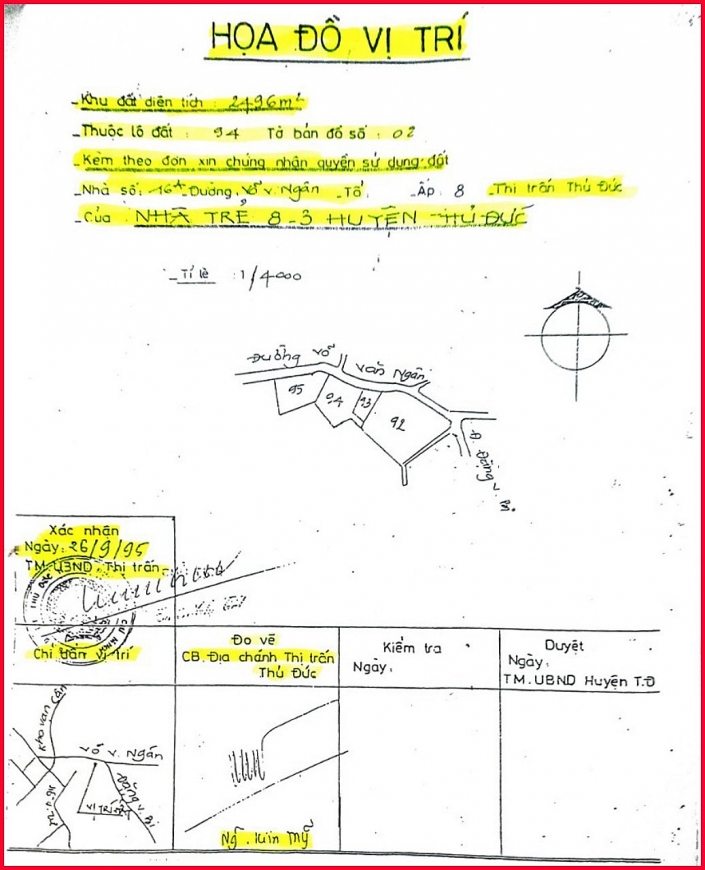 HỌA ĐỒ VỊ TRÍ
_Khu đất diện tích : 2496m²
_Thuộc lô đất : 94 Tờ bản đồ số : 02
_Kèm theo đơn xin chứng nhận quyền sử dụng đất
_Nhà số: 16A Đường, Võ v. Ngân _Tổ, _Ấp: 8 _Thị trấn Thủ Đức
_Của : NHÀ TRẺ 8-3 HUYỆN THỦ ĐỨC
_Tỉ lệ : 1/4000
Đường Võ Văn Ngân
95
94
93
92
Đ. Đặng V. Bi
Xác nhận
Ngày: 26/9/95
TM. UBND. Thị trấn
Chỉ dẫn vị trí
Đo vẽ
CB. Địa chánh Thị trấn
Thủ Đức
Kiểm tra
Ngày:
Duyệt
Ngày:
TM. UBND Huyện T.Đ
Kha Vạn Cân
Võ V. Ngân
Đặng V. Bi
VỊ TRÍ